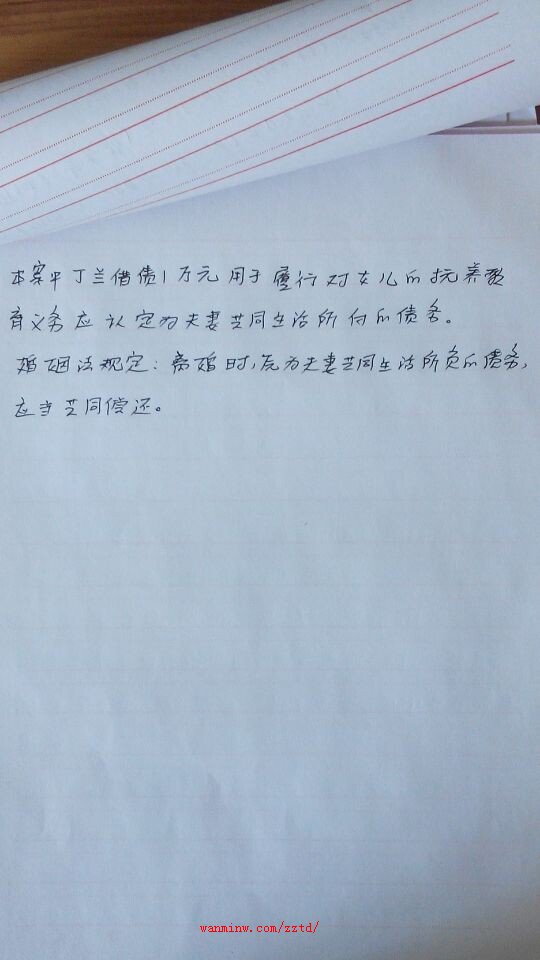 本案中丁兰借债1万元用于履行对女儿的抚养教
育义务应认定为夫妻共同生活所付的债务。
婚姻法规定：离婚时，原为夫妻共同生活所负的债务，
应当共同偿还。
wanminw.com/zztd/